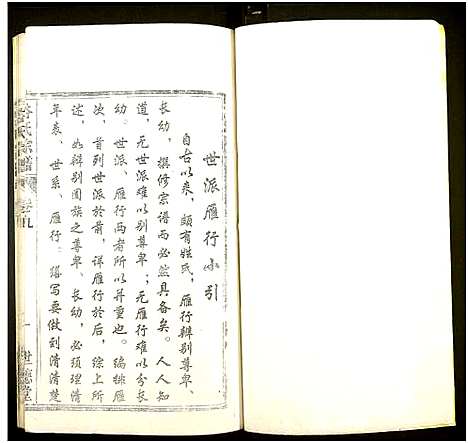 世派雁行小引
自古以来，颇有姓氏，雁行辨别尊卑、
长幼，撰修宗谱而必然具备矣。人人知
道，无世派难以别尊卑；无雁行难以分长
幼。世派、雁行两者所以并重也。编排雁
次，首列世派於前，详雁行於后，综上所
述，如辩别图族之尊卑、长幼，必须理清
年表、世系、雁行。缮写要做到清清楚
氏宗谱
卷首
一
世德堂